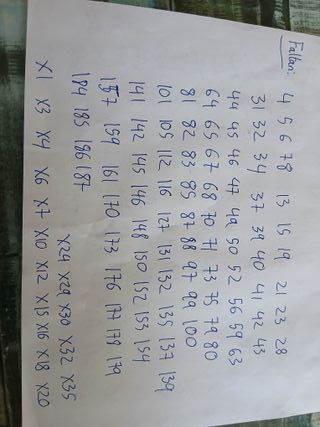 Faltan:
4 5 6 7 8 13 15 19 21 23 28
31 32 34 37 39 40 41 42 43
44 45 46 47 49 50 52 56 59 63
64 65 67 68 70 71 73 75 79 80
81 82 83 85 87 88 97 99 100
101 105 112 116 127 131 132 135 137 139
141 142 145 146 148 150 152 153 154
157 159 161 170 173 176 177 178 179
184 185 186 187
X24 X29 X30 X32 X35
X1 X3 X4 X6 X7 X10 X12 X15 X16 X18 X20